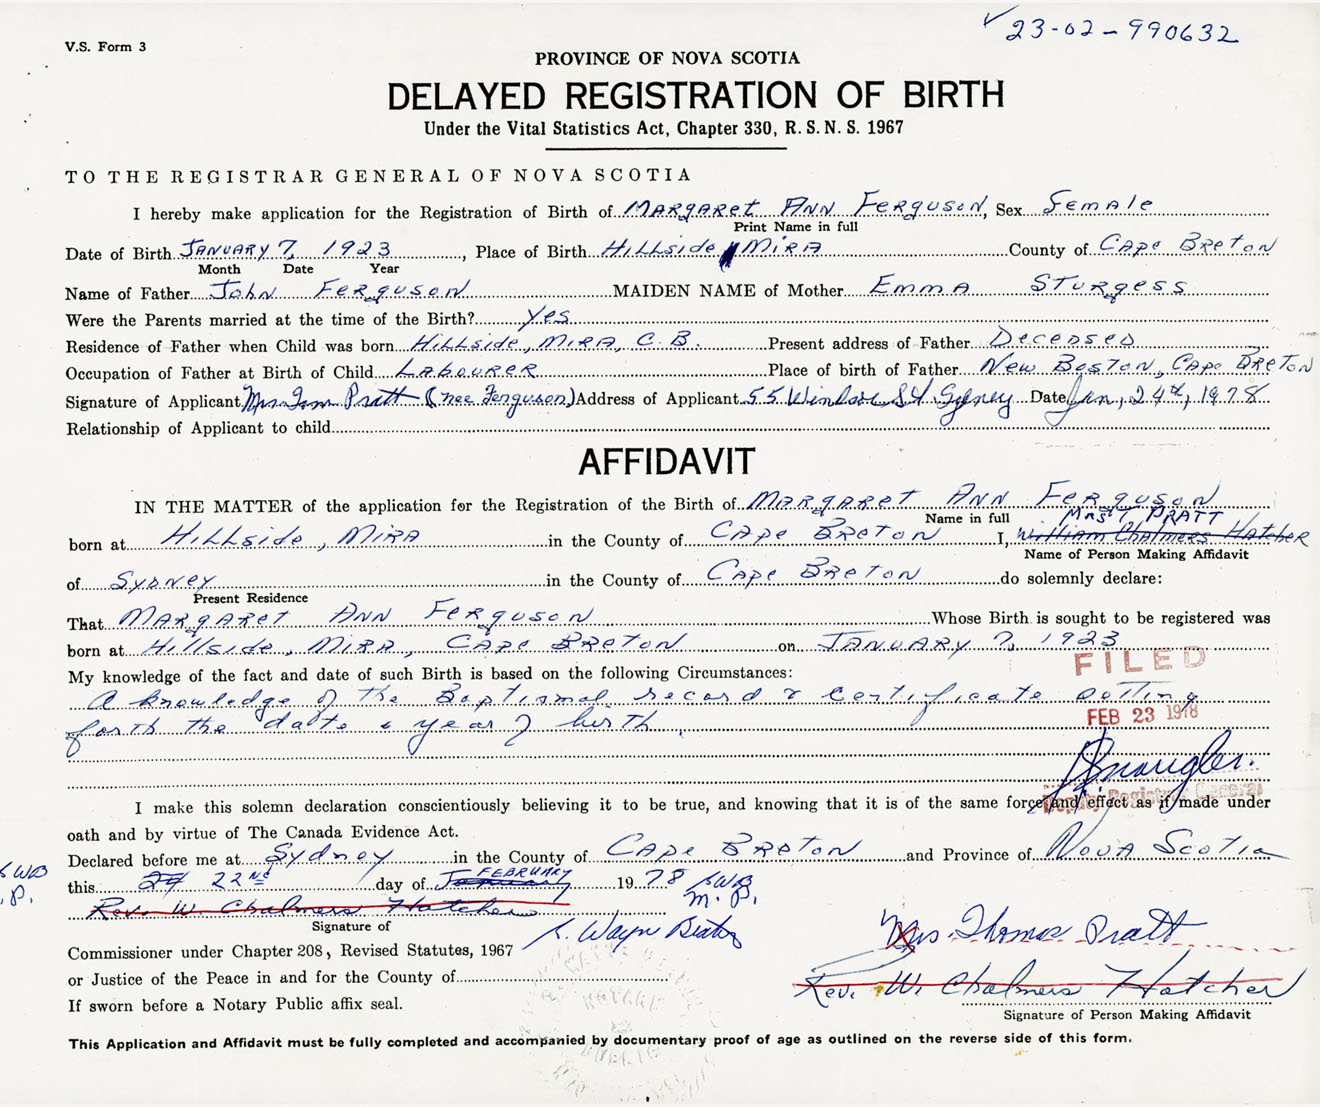 ✓ 23-02-990632
V.S. Form 3
PROVINCE OF NOVA SCOTIA
DELAYED REGISTRATION OF BIRTH
Under the Vital Statistics Act, Chapter 330, R. S. N. S. 1967
TO THE REGISTRAR GENERAL OF NOVA SCOTIA
I hereby make application for the Registration of Birth of MARGARET ANN FERGUSON, Sex FEMALE
Print Name in full
Date of Birth JANUARY 7, 1923, Place of Birth HILLSIDE MIRA County of CAPE BRETON
Month Date Year
Name of Father JOHN FERGUSON MAIDEN NAME of Mother EMMA STURGESS
Were the Parents married at the time of the Birth? Yes
Residence of Father when Child was born HILLSIDE, MIRA, C.B. Present address of Father DECEASED
Occupation of Father at Birth of Child LABOURER Place of birth of Father NEW BOSTON, CAPE BRETON
Signature of Applicant Mrs Tom Pratt (nee Ferguson) Address of Applicant 55 Windsor St Sydney Date Jan, 24th, 1978
Relationship of Applicant to child
AFFIDAVIT
IN THE MATTER of the application for the Registration of the Birth of MARGARET ANN FERGUSON
Name in full MRS T PRATT
born at HILLSIDE, MIRA in the County of CAPE BRETON I, William Chalmers Hatcher
Name of Person Making Affidavit
of SYDNEY in the County of CAPE BRETON do solemnly declare:
Present Residence
That MARGARET ANN FERGUSON Whose Birth is sought to be registered was
born at HILLSIDE, MIRA, CAPE BRETON on JANUARY 7, 1923
FILED
My knowledge of the fact and date of such Birth is based on the following Circumstances:
A knowledge of the Baptismal record & certificate setting
forth the date & year of birth.
FEB 23 1978
Deputy Registrar General
I make this solemn declaration conscientiously believing it to be true, and knowing that it is of the same force and effect as if made under
oath and by virtue of The Canada Evidence Act.
Declared before me at Sydney in the County of CAPE BRETON and Province of NOVA SCOTIA
this 24 22nd day of January FEBRUARY 1978
Rev. W. Chalmers Hatcher
Signature of
Mrs. Thomas Pratt
Commissioner under Chapter 208, Revised Statutes, 1967
or Justice of the Peace in and for the County of
Rev. W. Chalmers Hatcher
If sworn before a Notary Public affix seal.
Signature of Person Making Affidavit
This Application and Affidavit must be fully completed and accompanied by documentary proof of age as outlined on the reverse side of this form.